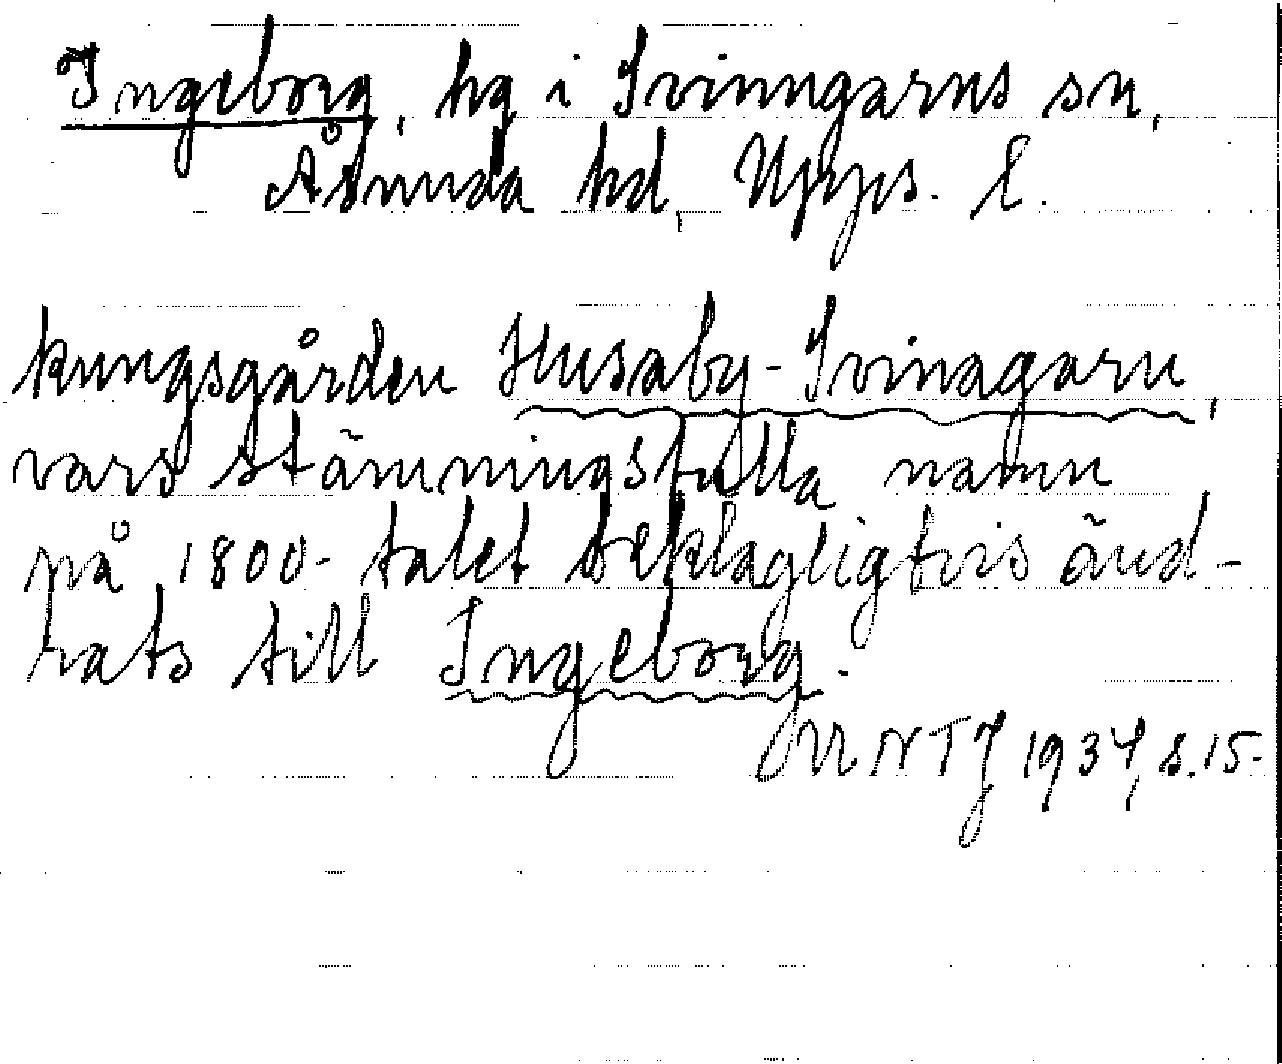 Ingeborg, hg i Svinngarns sn,
Åsunda hd, Upps. l.
kungsgården Husaby-Svinagarn,
vars stämningsfulla namn
på 1800-talet beklagligtvis änd-
rats till Ingeborg.
i NTJ 1934, s. 15.